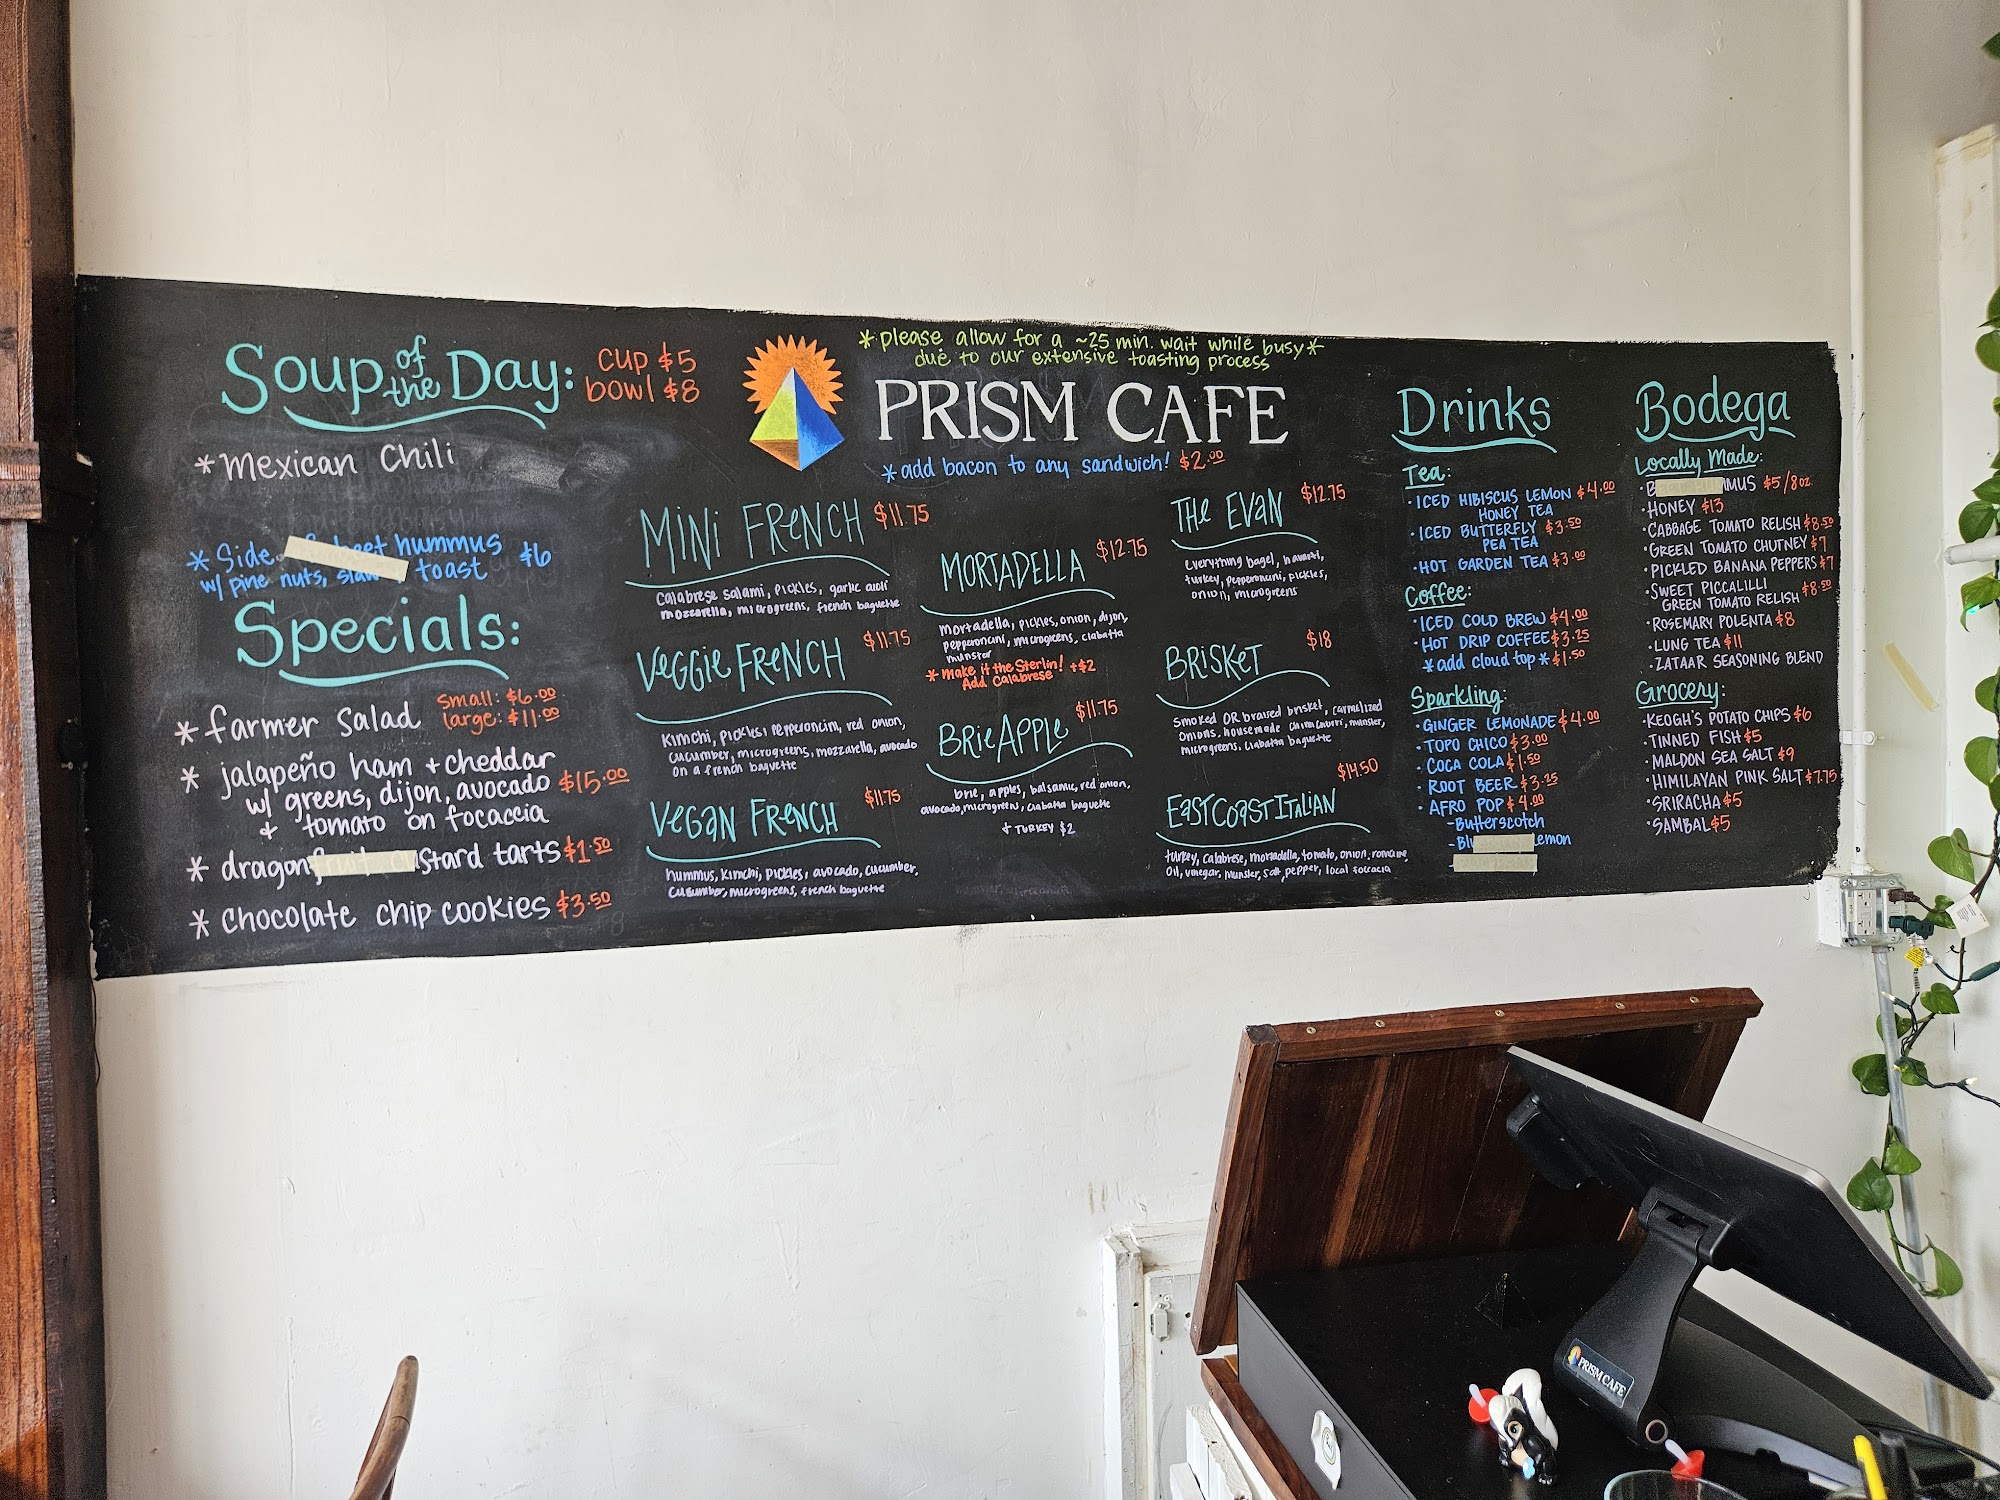 Soup of the Day: cup $5
bowl $8
*Mexican Chili
*Side hummus $6
w/ pine nuts, toast
Specials:
*farmer salad small: $6.00
large: $11.00
*jalapeño ham + cheddar
w/ greens, dijon, avocado $15.00
+ tomato on focaccia
*dragonfruit custard tarts $1.50
*chocolate chip cookies $3.50
*please allow for a ~25 min. wait while busy*
due to our extensive toasting process
PRISM CAFE
*add bacon to any sandwich! $2.00
MINI FRENCH $11.75
Calabrese salami, pickles, garlic aioli
mozzarella, microgreens, french baguette
VEGGIE FRENCH $11.75
Kimchi, pickles, pepperoncini, red onion,
cucumber, microgreens, mozzarella, avocado
on a french baguette
VEGAN FRENCH $11.75
hummus, kimchi, pickles, avocado, cucumber,
cucumber, microgreens, french baguette
MORTADELLA $12.75
mortadella, pickles, onion, dijon,
pepperoncini, microgreens, ciabatta
munster
*make it the Sterlin! +$2
Add Calabrese
BRIE APPLE $11.75
brie, apples, balsamic, red onion,
avocado, microgreens, ciabatta baguette
+ TURKEY $2
THE EVAN $12.75
Everything bagel, havarti,
turkey, pepperoncini, pickles,
onion, microgreens
BRISKET $18
Smoked OR braised brisket, carmelized
onions, housemade chimichurri, munster,
microgreens, ciabatta baguette
EAST COAST ITALIAN $14.50
turkey, calabrese, mortadella, tomato, onion, romaine,
oil, vinegar, munster, salt, pepper, local focacia
Drinks
Tea:
·ICED HIBISCUS LEMON $4.00
HONEY TEA
·ICED BUTTERFLY $3.50
PEA TEA
·HOT GARDEN TEA $3.00
Coffee:
·ICED COLD BREW $4.00
·HOT DRIP COFFEE $3.25
*add cloud top* $1.50
Sparkling:
·GINGER LEMONADE $4.00
·TOPO CHICO $3.00
·COCA COLA $1.50
·ROOT BEER $3.25
·AFRO POP $4.00
-Butterscotch
-Blu emon
Bodega
Locally Made:
·B MUS $5/8oz
·HONEY $13
·CABBAGE TOMATO RELISH $8.50
·GREEN TOMATO CHUTNEY $7
·PICKLED BANANA PEPPERS $7
·SWEET PICCALILLI
GREEN TOMATO RELISH $8.50
·ROSEMARY POLENTA $8
·LUNG TEA $11
·ZATAAR SEASONING BLEND
Grocery:
·KEOGH'S POTATO CHIPS $6
·TINNED FISH $5
·MALDON SEA SALT $9
·HIMILAYAN PINK SALT $7.75
·SRIRACHA $5
·SAMBAL $5
PRISM CAFE